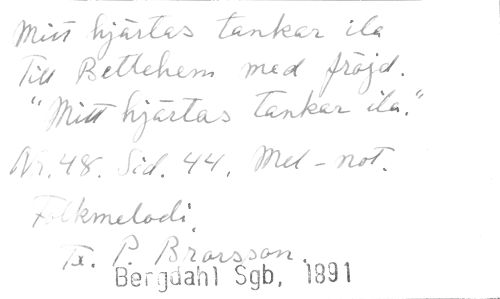 Mitt hjärtas tankar ila
Till Betlehem med fröjd.
"Mitt hjärtas tankar ila."
Nr. 48. Sid. 44. Mel-not.
Folkmelodi.
Tx. P. Brorsson.
Bergdahl Sgb, 1891